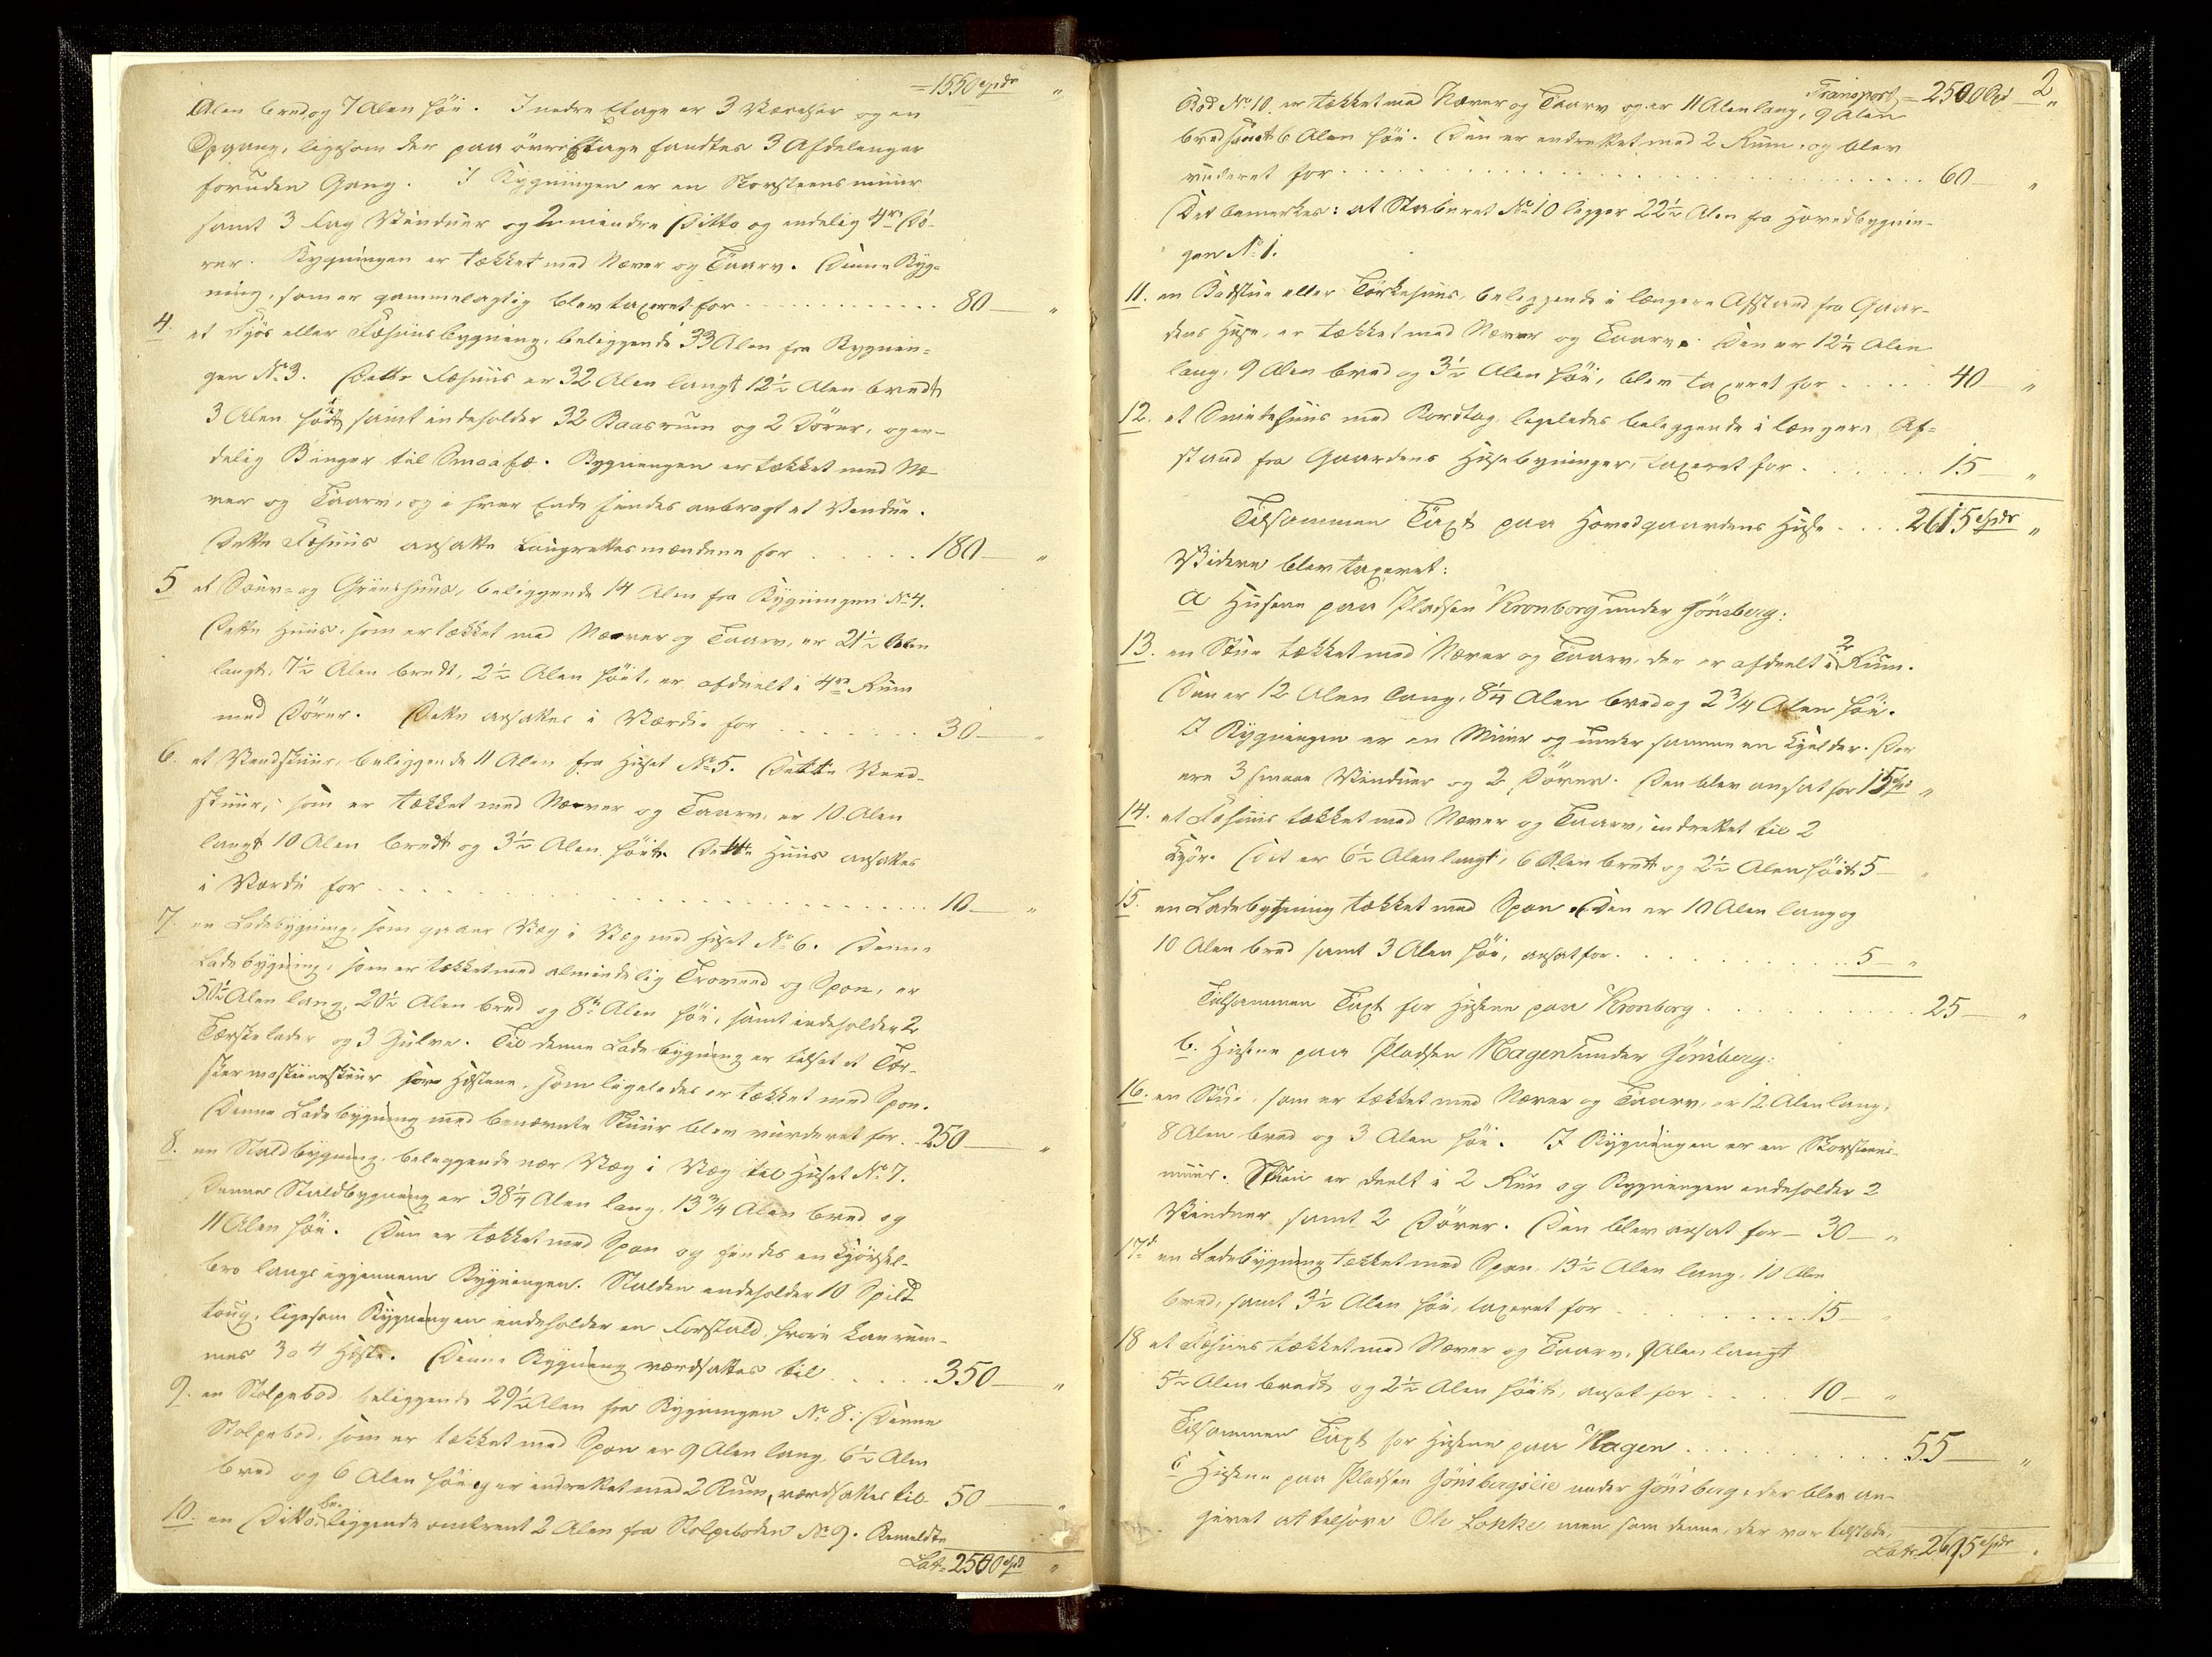 = 1550 Spdr "
Alen bred og 7 Alen høi. I nedre Etage er 3 Værelser og en
Opgang, ligesom der paa övre Etage fandtes 3 Afdelinger
foruden Gang. I Bygningen er en Skorsteens muur
samt 3 Fag Vinduer og 2 mindre Ditto og endelig 4re Dö-
rer. Bygningen er tækket med Næver og Taarv. Denne Byg-
ning, som er gammelagtig blev taxeret for 80 — "
4. et Fjös eller Fæhuusbygning, beliggende 33 Alen fra Bygnin-
gen No 3. Dette Fæhuus er 32 Alen langt 12½ Alen bredt
3 Alen höit samt indeholder 32 Baasrum og 2 Dörer, og en-
delig Binger til Smaafæ. Bygningen er tækket med Næ-
ver og Taarv, og i hver Ende findes anbragt et Vindue.
Dette Fæhuus ansatte Laugrettesmændene for 180 — "
5 et Souv- og Griisehuus, beliggende 14 Alen fra Bygningen No 4.
Dette Huus, som er tækket med Næver og Taarv, er 21½ Alen
langt, 7½ Alen bredt, 2½ Alen höit, er afdeelt i 4re Rum
med Dörer. Dette ansattes i Værdie for 30 — "
6. et Vedskuur, beliggende 11 Alen fra Huset No 5. Dette Veed-
skuur, som er tækket med Næver og Taarv, er 10 Alen
langt 10 Alen bredt og 3½ Alen höit. Dette Huus ansattes
i Værdi for 10 — "
7 en Ladebygning, som gaaer Væg i Væg med Huset No 6. Denne
Ladebygning, som er tækket med almindelig Troveed og Spon, er
50½ Alen lang, 20½ Alen bred og 8½ Alen höi, samt indeholder 2
Tærskelader og 3 Gulve. Til denne Ladebygning er tilsat et Tær-
skermaskineskuur for Hestene, som ligeledes er tækket med Spon.
Denne Ladebygning med benævnte Skuur blev vurderet for 250 — "
8. en Staldbygning, beliggende nær Væg i Væg til Huset No 7.
Denne Staldbygning er 38¼ Alen lang, 13¾ Alen bred og
11 Alen höi. Den er tækket med Spon og findes en Kjörsel-
bro langs igjennem Bygningen. Stalden indeholder 10 Spild
toug, ligesom Bygningen indeholder en Forstald, hvori kan rum-
mes 3 a 4 Heste. Denne Bygning værdsattes til 350 — "
9. en Stolpebod beliggende 29½ Alen fra Bygningen No 8: Denne
Stolpebod, som er tækket med Spon er 9 Alen lang, 6½ Alen
bred og 6 Alen höi og er indrettet med 2 Rum, værdsattes til 50 — "
10. en Ditto, beliggende omtrent 2 Alen fra Stolpeboden No 9. Bemeldte
Lat. 2500 Spd "
Transport = 2500 Spd — " 2
Bod No 10. er tækket med Næver og Taarv og er 11 Alen lang, 9 Alen
bred samt 6 Alen höi. Den er indrettet med 2 Rum, og blev
vuderet for 60 — "
Det bemerkes: at Staburet No 10 ligger 22½ Alen fra Hovedbygnin-
gen No 1.
11. en Badstue eller Törkehuus, beliggende i længere Afstand fra Gaar-
dens Huse, er tækket med Næver og Taarv. Den er 12¼ Alen
lang, 9 Alen bred og 3½ Alen höi, blev taxeret for 40 — "
12. et Smidehuus med Bordtag ligeledes beliggende i længere Af-
stand fra Gaardens Husebygninger, taxeret for 15 — "
Tilsammen Taxt paa Hovedgaardens Huse 2615 Spdr "
Videre blev taxeret:
a Husene paa Pladsen Kronborg under Gönsberg:
13. en Stue tækket med Næver og Taarv, der er afdeelt i 2 Rum.
Den er 12 Alen lang, 8¼ Alen bred og 2¾ Alen höi.
I Bygningen er en Muur og under samme en Kjelder. Der
ere 3 smaae Vinduer og 2 Dörer. Den blev ansat for 15 Spd "
14. et Fæhuus tækket med Næver og Taarv, indrettet til 2
Kjör. Det er 6½ Alen langt, 6 Alen bredt og 2½ Alen höit 5 — "
15. en Ladebygning tækket med Spon. Den er 10 Alen lang og
10 Alen bred samt 3 Alen höi, ansat for 5 — "
Tilsammen Taxt for Husene paa Kronborg 25 — "
b. Husene paa Pladsen Hagen under Gönsberg:
16. en Stue, som er tækket med Næver og Taarv, er 12 Alen lang,
8 Alen bred og 3 Alen höi. I Bygningen er en Skorsteens-
muur. Stuen er deelt i 2 Rum og Bygningen indeholder 2
Vinduer samt 2 Dörer. Den blev ansat for — 30 — "
17d en Ladebygning tækket med Spon 13½ Alen lang, 10 Alen
bred, samt 3½ Alen höi, taxeret for 15 — "
18 et Fæhuus tækket med Næver og Taarv, 9 Alen langt
5½ Alen bredt og 2½ Alen höit, ansat for 10 — "
Tilsammen Taxt for Husene paa Hagen 55 — "
c Husene paa Pladsen Gönsbergseie under Gönsberg, der blev an-
givet at tilhöre Ole Løkke men som denne, der var tilstæde,
Lat. 2695 Spdr "